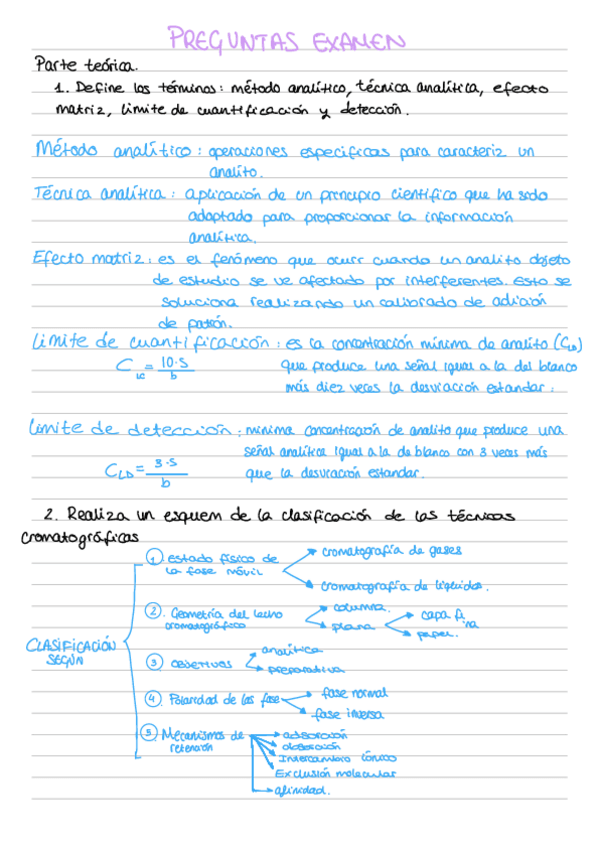 PREGUNTAS EXAMEN
Parte teórica.
1. Define los términos: método analítico, técnica analítica, efecto
matriz, limite de cuantificación y detección.
Método analítico: operaciones especificas para caracteriz un
analito.
Técnica analítica: aplicación de un principio científico que ha sido
adaptado para proporcionar la información
analítica.
Efecto matriz: es el fenómeno que ocurr cuando un analito objeto
de estudio se ve afectado por interferentes. Esto se
soluciona realizando un calibrado de adición
de patrón.
Limite de cuantificación: es la concentración mínima de analito (CLD)
que produce una señal igual a la del blanco
más diez veces la desviación estandar.
C LC = 10·S / b
Limite de detección: minima concentración de analito que produce una
señal analítica igual a la de blanco con 3 veces más
que la desviación estandar.
CLD = 3·S / b
2. Realiza un esquem de la clasificación de las técnicas
cromatográficas
CLASIFICACIÓN
SEGÚN
1. Estado físico de
la fase móvil
cromatografía de gases
cromatografía de líquidos.
2. Geometría del lecho
cromatográfico
columna.
plana
capa fina
papel.
3 objetivos
analítica
preparativa
4 Polaridad de las fase
fase normal
fase inversa
5 Mecanismos de
retención
adsorción
absorción
Intercambio iónico
Exclusión molecular
afinidad.